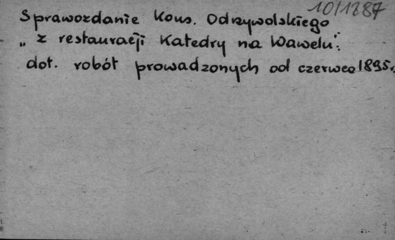 10/1287
Sprawozdanie Kons. Odrzywolskiego
„z restauracji Katedry na Wawelu":
dot. robót prowadzonych od czerwca 1895r.